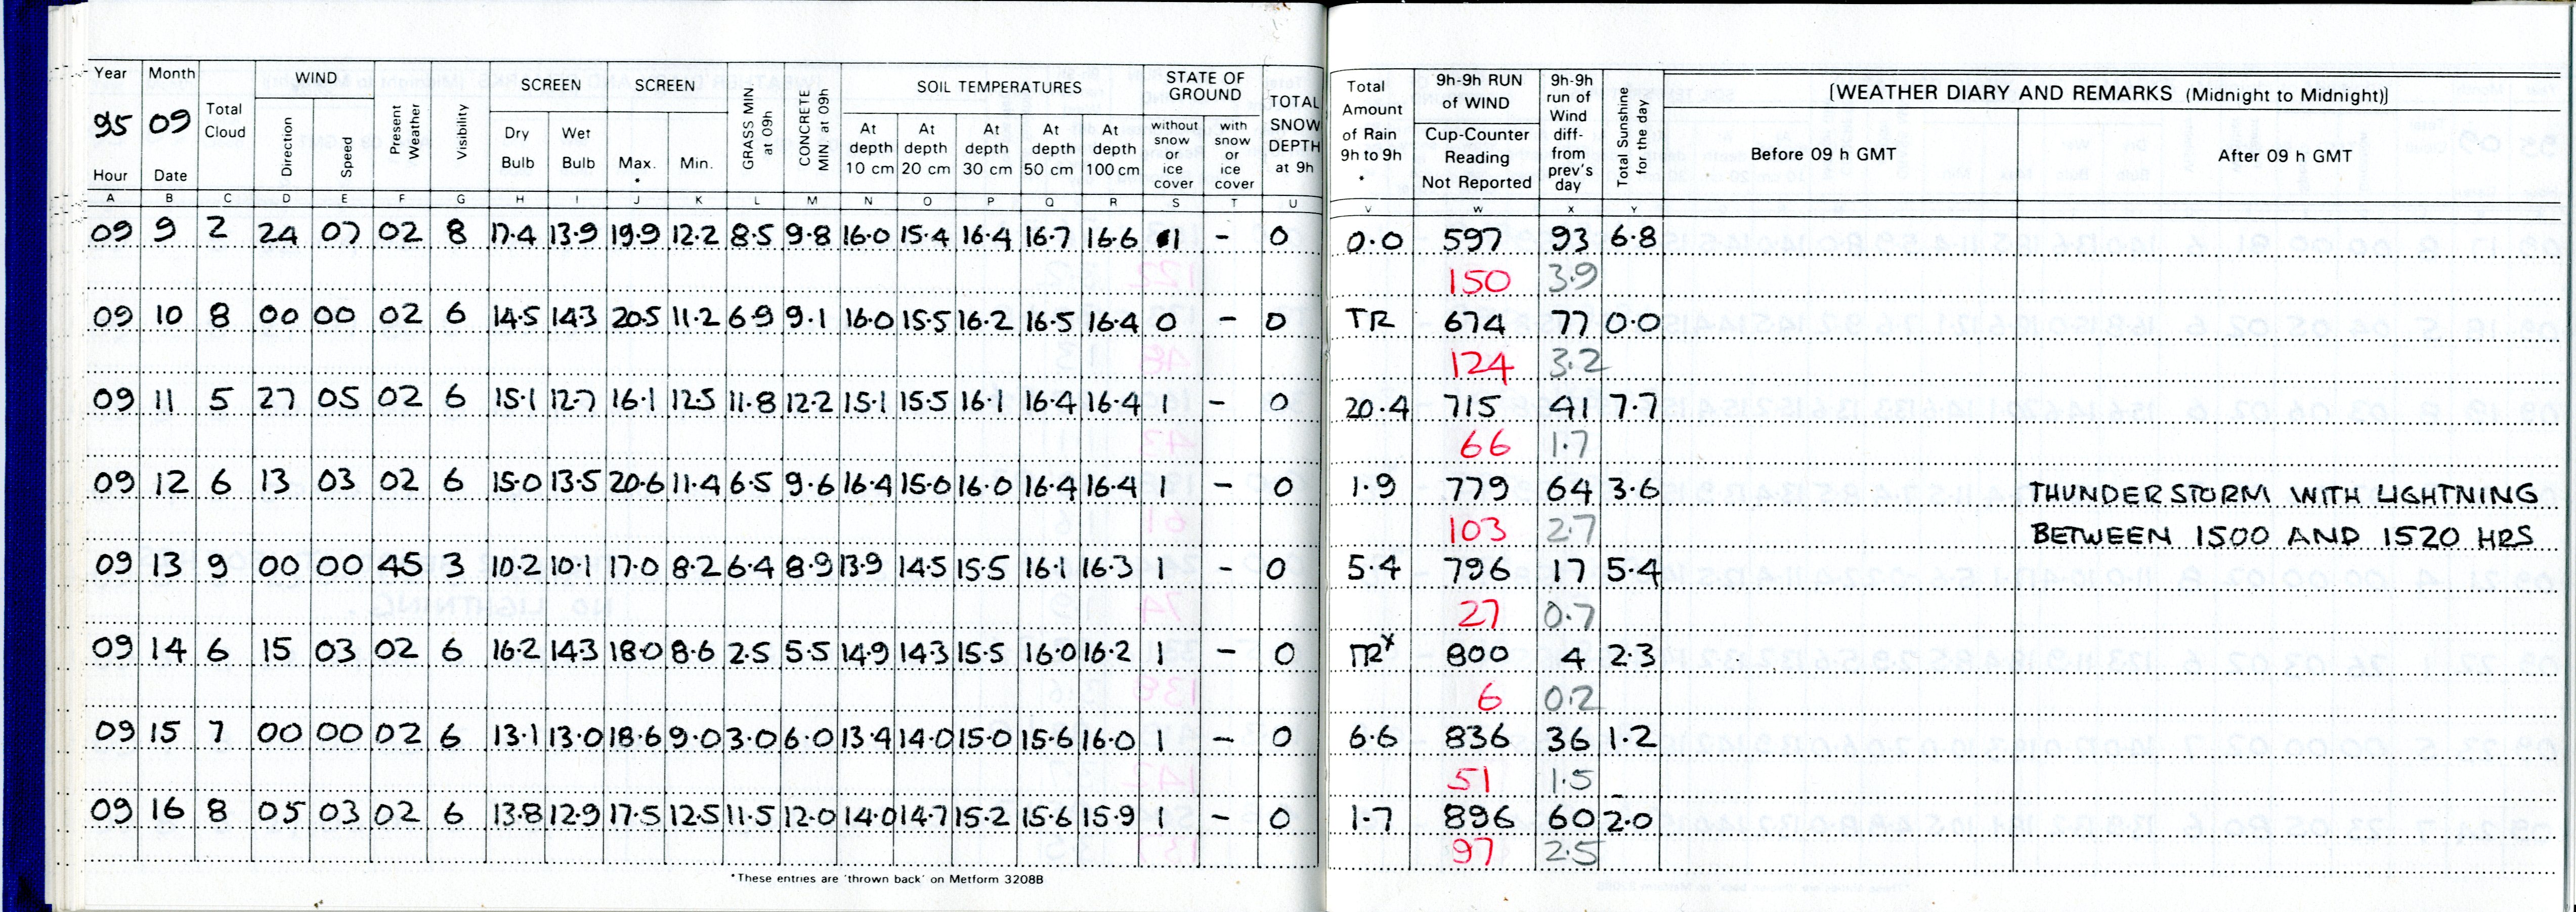 Year Month Total Cloud WIND Present Weather Visibility SCREEN SCREEN GRASS MIN. at 09h CONCRETE MIN. at 09h SOIL TEMPERATURES STATE OF GROUND TOTAL SNOW DEPTH at 9h Total Amount of Rain 9h to 9h * 9h-9h RUN of WIND 9h-9h run of Wind diff- from prev's day Total Sunshine for the day (WEATHER DIARY AND REMARKS (Midnight to Midnight))
95 09 Direction Speed Dry Bulb Wet Bulb Max. * Min. At depth 10 cm At depth 20 cm At depth 30 cm At depth 50 cm At depth 100 cm without snow or ice cover with snow or ice cover Cup-Counter Reading Not Reported Before 09 h GMT After 09 h GMT
Hour Date
A B C D E F G H I J K L M N O P Q R S T U V W X Y
09 9 2 24 07 02 8 17.4 13.9 19.9 12.2 8.5 9.8 16.0 15.4 16.4 16.7 16.6 1 - 0 0.0 597 93 6.8
150 3.9
09 10 8 00 00 02 6 14.5 14.3 20.5 11.2 6.9 9.1 16.0 15.5 16.2 16.5 16.4 0 - 0 TR 674 77 0.0
124 3.2
09 11 5 27 05 02 6 15.1 12.7 16.1 12.5 11.8 12.2 15.1 15.5 16.1 16.4 16.4 1 - 0 20.4 715 41 7.7
66 1.7
09 12 6 13 03 02 6 15.0 13.5 20.6 11.4 6.5 9.6 16.4 15.0 16.0 16.4 16.4 1 - 0 1.9 779 64 3.6 THUNDERSTORM WITH LIGHTNING
103 2.7 BETWEEN 1500 AND 1520 HRS
09 13 9 00 00 45 3 10.2 10.1 17.0 8.2 6.4 8.9 13.9 14.5 15.5 16.1 16.3 1 - 0 5.4 796 17 5.4
27 0.7
09 14 6 15 03 02 6 16.2 14.3 18.0 8.6 2.5 5.5 14.9 14.3 15.5 16.0 16.2 1 - 0 TRx 800 4 2.3
6 0.2
09 15 7 00 00 02 6 13.1 13.0 18.6 9.0 3.0 6.0 13.4 14.0 15.0 15.6 16.0 1 - 0 6.6 836 36 1.2
51 1.5
09 16 8 05 03 02 6 13.8 12.9 17.5 12.5 11.5 12.0 14.0 14.7 15.2 15.6 15.9 1 - 0 1.7 896 60 2.0
97 2.5
*These entries are 'thrown back' on Metform 3208B